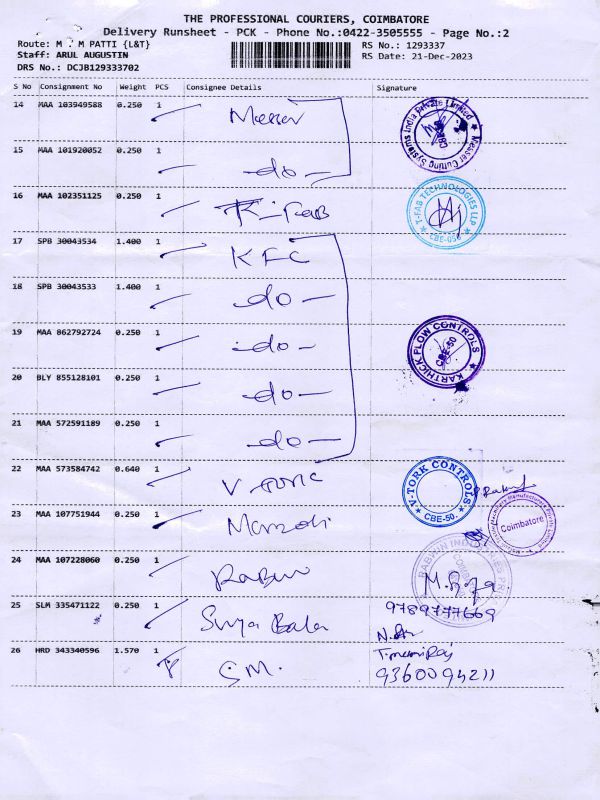 THE PROFESSIONAL COURIERS, COIMBATORE
Delivery Runsheet - PCK - Phone No.:0422-3505555 - Page No.:2
Route: M . M PATTI {L&T}
RS No.: 1293337
Staff: ARUL AUGUSTIN
RS Date: 21-Dec-2023
DRS No.: DCJB129333702
S No Consignment No Weight PCS Consignee Details Signature
14 MAA 103949588 0.250 1 Messer
Messer Cutting Systems India Private Limited
15 MAA 101920052 0.250 1 -do-
16 MAA 102351125 0.250 1 T-Fab
T-FAB TECHNOLOGIES LLP CBE-050
17 SPB 30043534 1.400 1 KFC
18 SPB 30043533 1.400 1 -do-
19 MAA 862792724 0.250 1 -do-
KARTHICK FLOW CONTROLS CBE-50
20 BLY 855128101 0.250 1 -do-
21 MAA 572591189 0.250 1 -do-
22 MAA 573584742 0.640 1 V
V-TORK CONTROLS CBE-50.
23 MAA 107751944 0.250 1
Coimbatore
24 MAA 107228060 0.250 1
M.
25 SLM 335471122 0.250 1 Surya Bala 9789777669
26 HRD 343340596 1.570 1 S.M.
9360094211